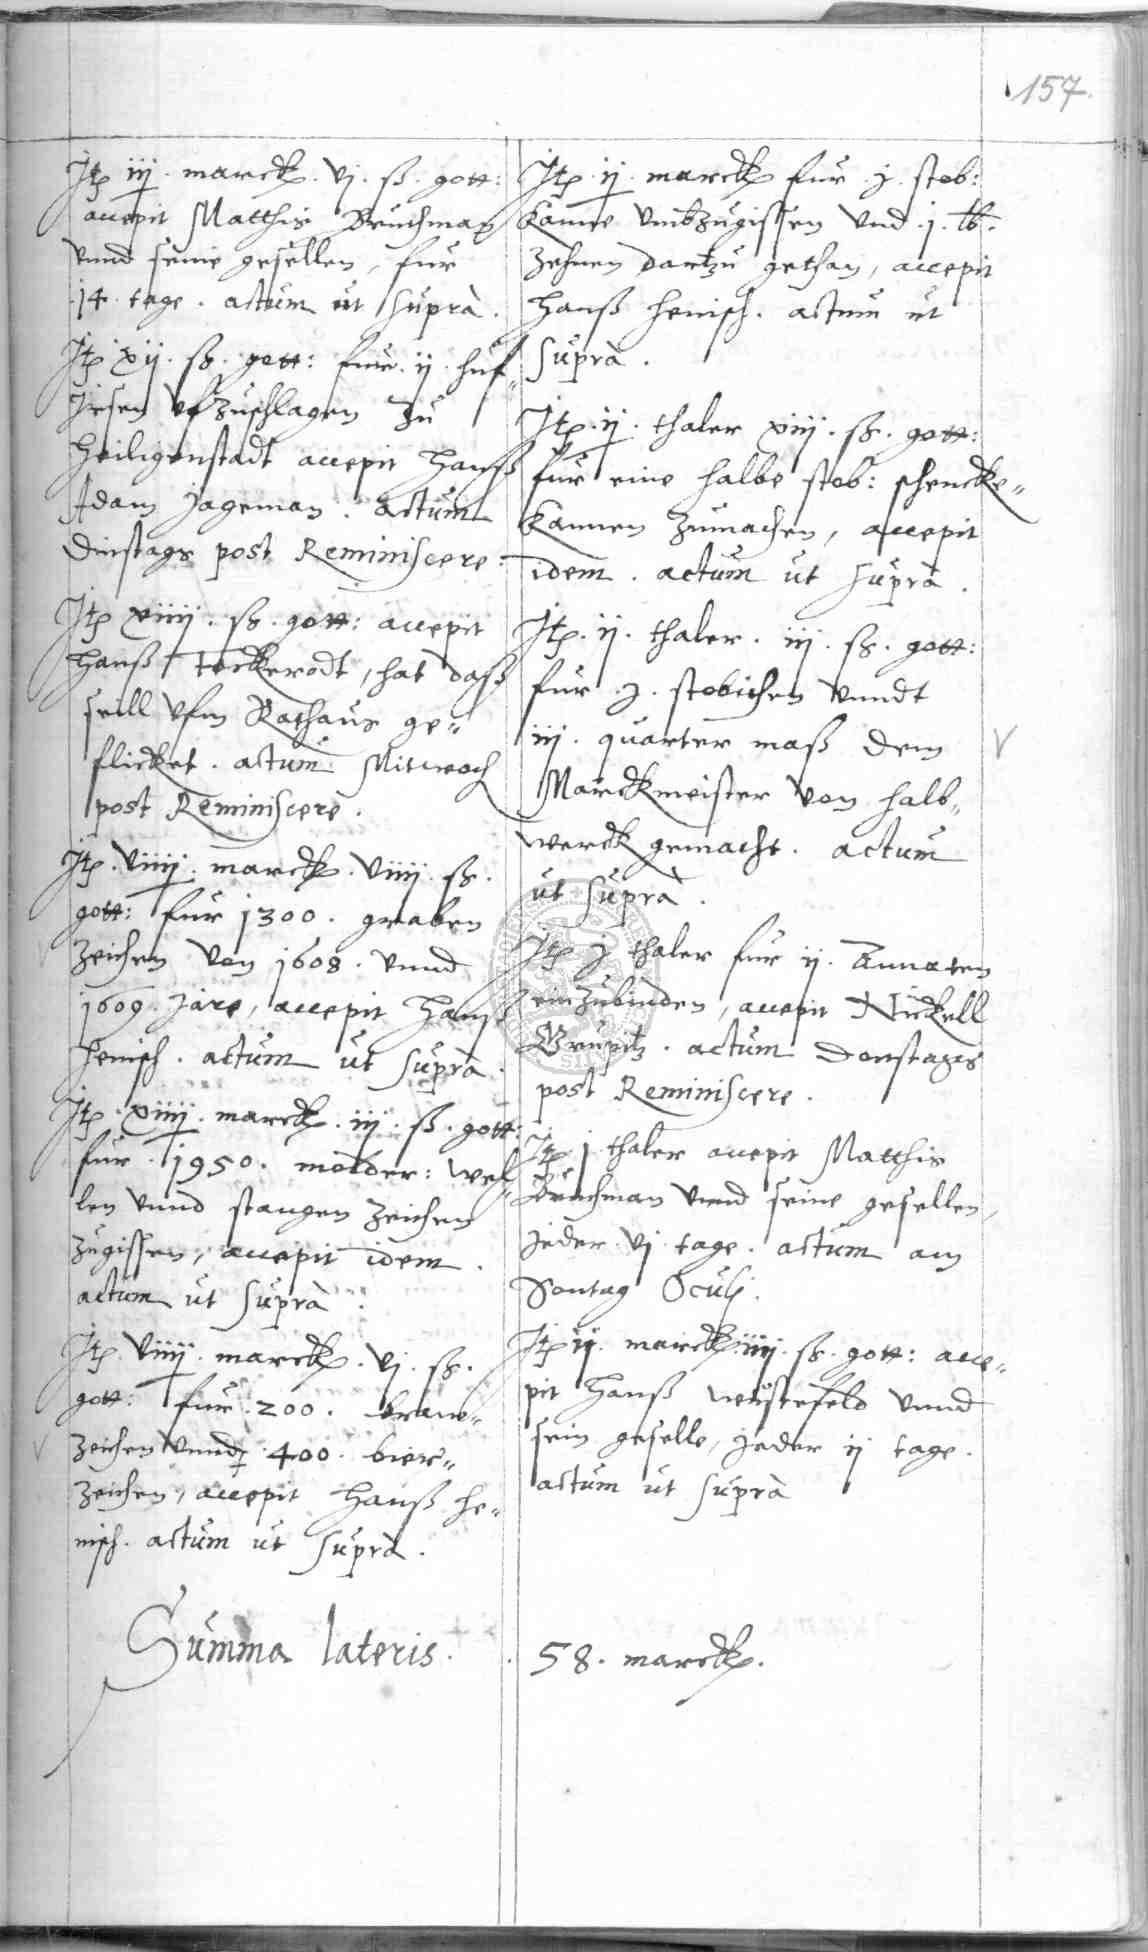 157.
Itp iij. marck. vj. ß. gott:
accepit Matthis Bruchman
vnnd seine gesellen, fur
14. tage. actum ut suprà.
Itp xij. ß. gott: fur. ij. huf„
Jesen vfzuschlagen zu
Heiligenstadt accepit Hanß
Adam Jageman. actum
Dinstags post Reminiscere.
Itp xiiij. ß. gott: accepit
Hanß Teckerodt, hat daß
seill vfm Rathaus ge„
flicket. actum Mitwoch
post Reminiscere.
Itp. viiij. marck. viiij. ß.
gott: fur 1300. graben
zeichen von 1608. vnnd
1609. Jare, accepit Hanß
Henisch. actum ut suprà.
Itp. xiiij. marck. iij. ß. gott:
fur. 1950. molder: wel„
len vnnd stangen zeichen
zugissen, accepit idem.
actum ut suprà.
Itp. viiij. marck. vj. ß.
gott: fur. 200. braw„
zeichen vnnd. 400. bier„
zeichen, accepit Hanß He„
nisch. actum ut suprà.
Itp. ij. marck fur. j. stob:
Kanne vmbzugissen vnd. j. lb.
zehnen dartzu gethan, accepit
Hanß Henisch. actum ut
suprà.
Itp. ij. thaler xiij. ß. gott:
fur eine halbe stob: schencke„
Kannen zumachen, accepit
idem. actum ut suprà.
Itp. ij. thaler. iij. ß. gott:
fur. j. stobichen vnndt
iij. quarter maß dem
Marckmeister von halb„
werck gemacht. actum
ut suprà.
Itp j thaler fur ij. Annaten
einzubinden, accepit Nickell
actum Donstages
post Reminiscere.
Itp j thaler accepit Matthis
Bruchman vnnd seine gesellen,
jeder vj tage. actum am
Sontag Oculj.
Itp ij. marck. iiij. ß. gott: acce„
pit Hanß wustefeld vnnd
sein geselle, jeder ij tage.
actum ut suprà
Summa lateris. 58. marck.